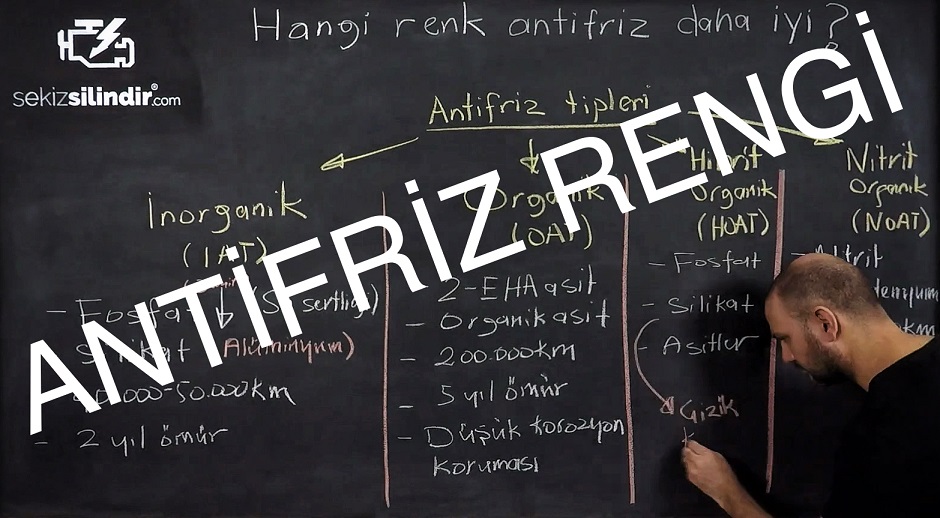 Hangi renk antifriz daha iyi?
sekizsilindir.com
Antifriz tipleri
ANTİFRİZ RENGİ
İnorganik
(IAT)
- Fosfat (Su sertliği)
- Silikat Alüminyum)
50.000km
- 2 yıl ömür
Organik
(OAT)
- 2-EHA asit
- Organik asit
- 200.000km
- 5 yıl ömür
- Düşük korozyon
koruması
Hibrit
Organik
(HOAT)
- Fosfat
- Silikat
- Asitler
Gizik
Nitrit
Organik
(NOAT)
- Nitrit
km